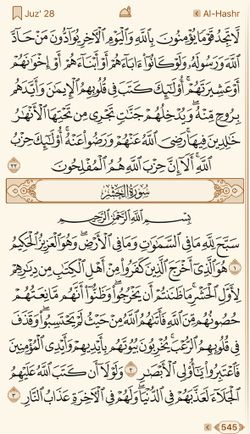 Juz' 28 Al-Hashr
لَّا تَجِدُ قَوْمًا يُؤْمِنُونَ بِٱللَّهِ وَٱلْيَوْمِ ٱلْـَٔاخِرِ يُوَآدُّونَ مَنْ حَآدَّ
ٱللَّهَ وَرَسُولَهُۥ وَلَوْ كَانُوٓا۟ ءَابَآءَهُمْ أَوْ أَبْنَآءَهُمْ أَوْ إِخْوَٰنَهُمْ
أَوْ عَشِيرَتَهُمْ ۚ أُو۟لَـٰٓئِكَ كَتَبَ فِى قُلُوبِهِمُ ٱلْإِيمَـٰنَ وَأَيَّدَهُم
بِرُوحٍ مِّنْهُ ۖ وَيُدْخِلُهُمْ جَنَّـٰتٍ تَجْرِى مِن تَحْتِهَا ٱلْأَنْهَـٰرُ
خَـٰلِدِينَ فِيهَا ۚ رَضِىَ ٱللَّهُ عَنْهُمْ وَرَضُوا۟ عَنْهُ ۚ أُو۟لَـٰٓئِكَ حِزْبُ
ٱللَّهِ ۚ أَلَآ إِنَّ حِزْبَ ٱللَّهِ هُمُ ٱلْمُفْلِحُونَ ٢٢
سُورَةُ الحَشْرِ
بِسْمِ ٱللَّهِ ٱلرَّحْمَـٰنِ ٱلرَّحِيمِ
سَبَّحَ لِلَّهِ مَا فِى ٱلسَّمَـٰوَٰتِ وَمَا فِى ٱلْأَرْضِ ۖ وَهُوَ ٱلْعَزِيزُ ٱلْحَكِيمُ
١ هُوَ ٱلَّذِىٓ أَخْرَجَ ٱلَّذِينَ كَفَرُوا۟ مِنْ أَهْلِ ٱلْكِتَـٰبِ مِن دِيَـٰرِهِمْ
لِأَوَّلِ ٱلْحَشْرِ ۚ مَا ظَنَنتُمْ أَن يَخْرُجُوا۟ ۖ وَظَنُّوٓا۟ أَنَّهُم مَّانِعَتُهُمْ
حُصُونُهُم مِّنَ ٱللَّهِ فَأَتَىٰهُمُ ٱللَّهُ مِنْ حَيْثُ لَمْ يَحْتَسِبُوا۟ ۖ وَقَذَفَ
فِى قُلُوبِهِمُ ٱلرُّعْبَ ۚ يُخْرِبُونَ بُيُوتَهُم بِأَيْدِيهِمْ وَأَيْدِى ٱلْمُؤْمِنِينَ
فَٱعْتَبِرُوا۟ يَـٰٓأُو۟لِى ٱلْأَبْصَـٰرِ ٢ وَلَوْلَآ أَن كَتَبَ ٱللَّهُ عَلَيْهِمُ
ٱلْجَلَآءَ لَعَذَّبَهُمْ فِى ٱلدُّنْيَا ۖ وَلَهُمْ فِى ٱلْـَٔاخِرَةِ عَذَابُ ٱلنَّارِ ٣
545